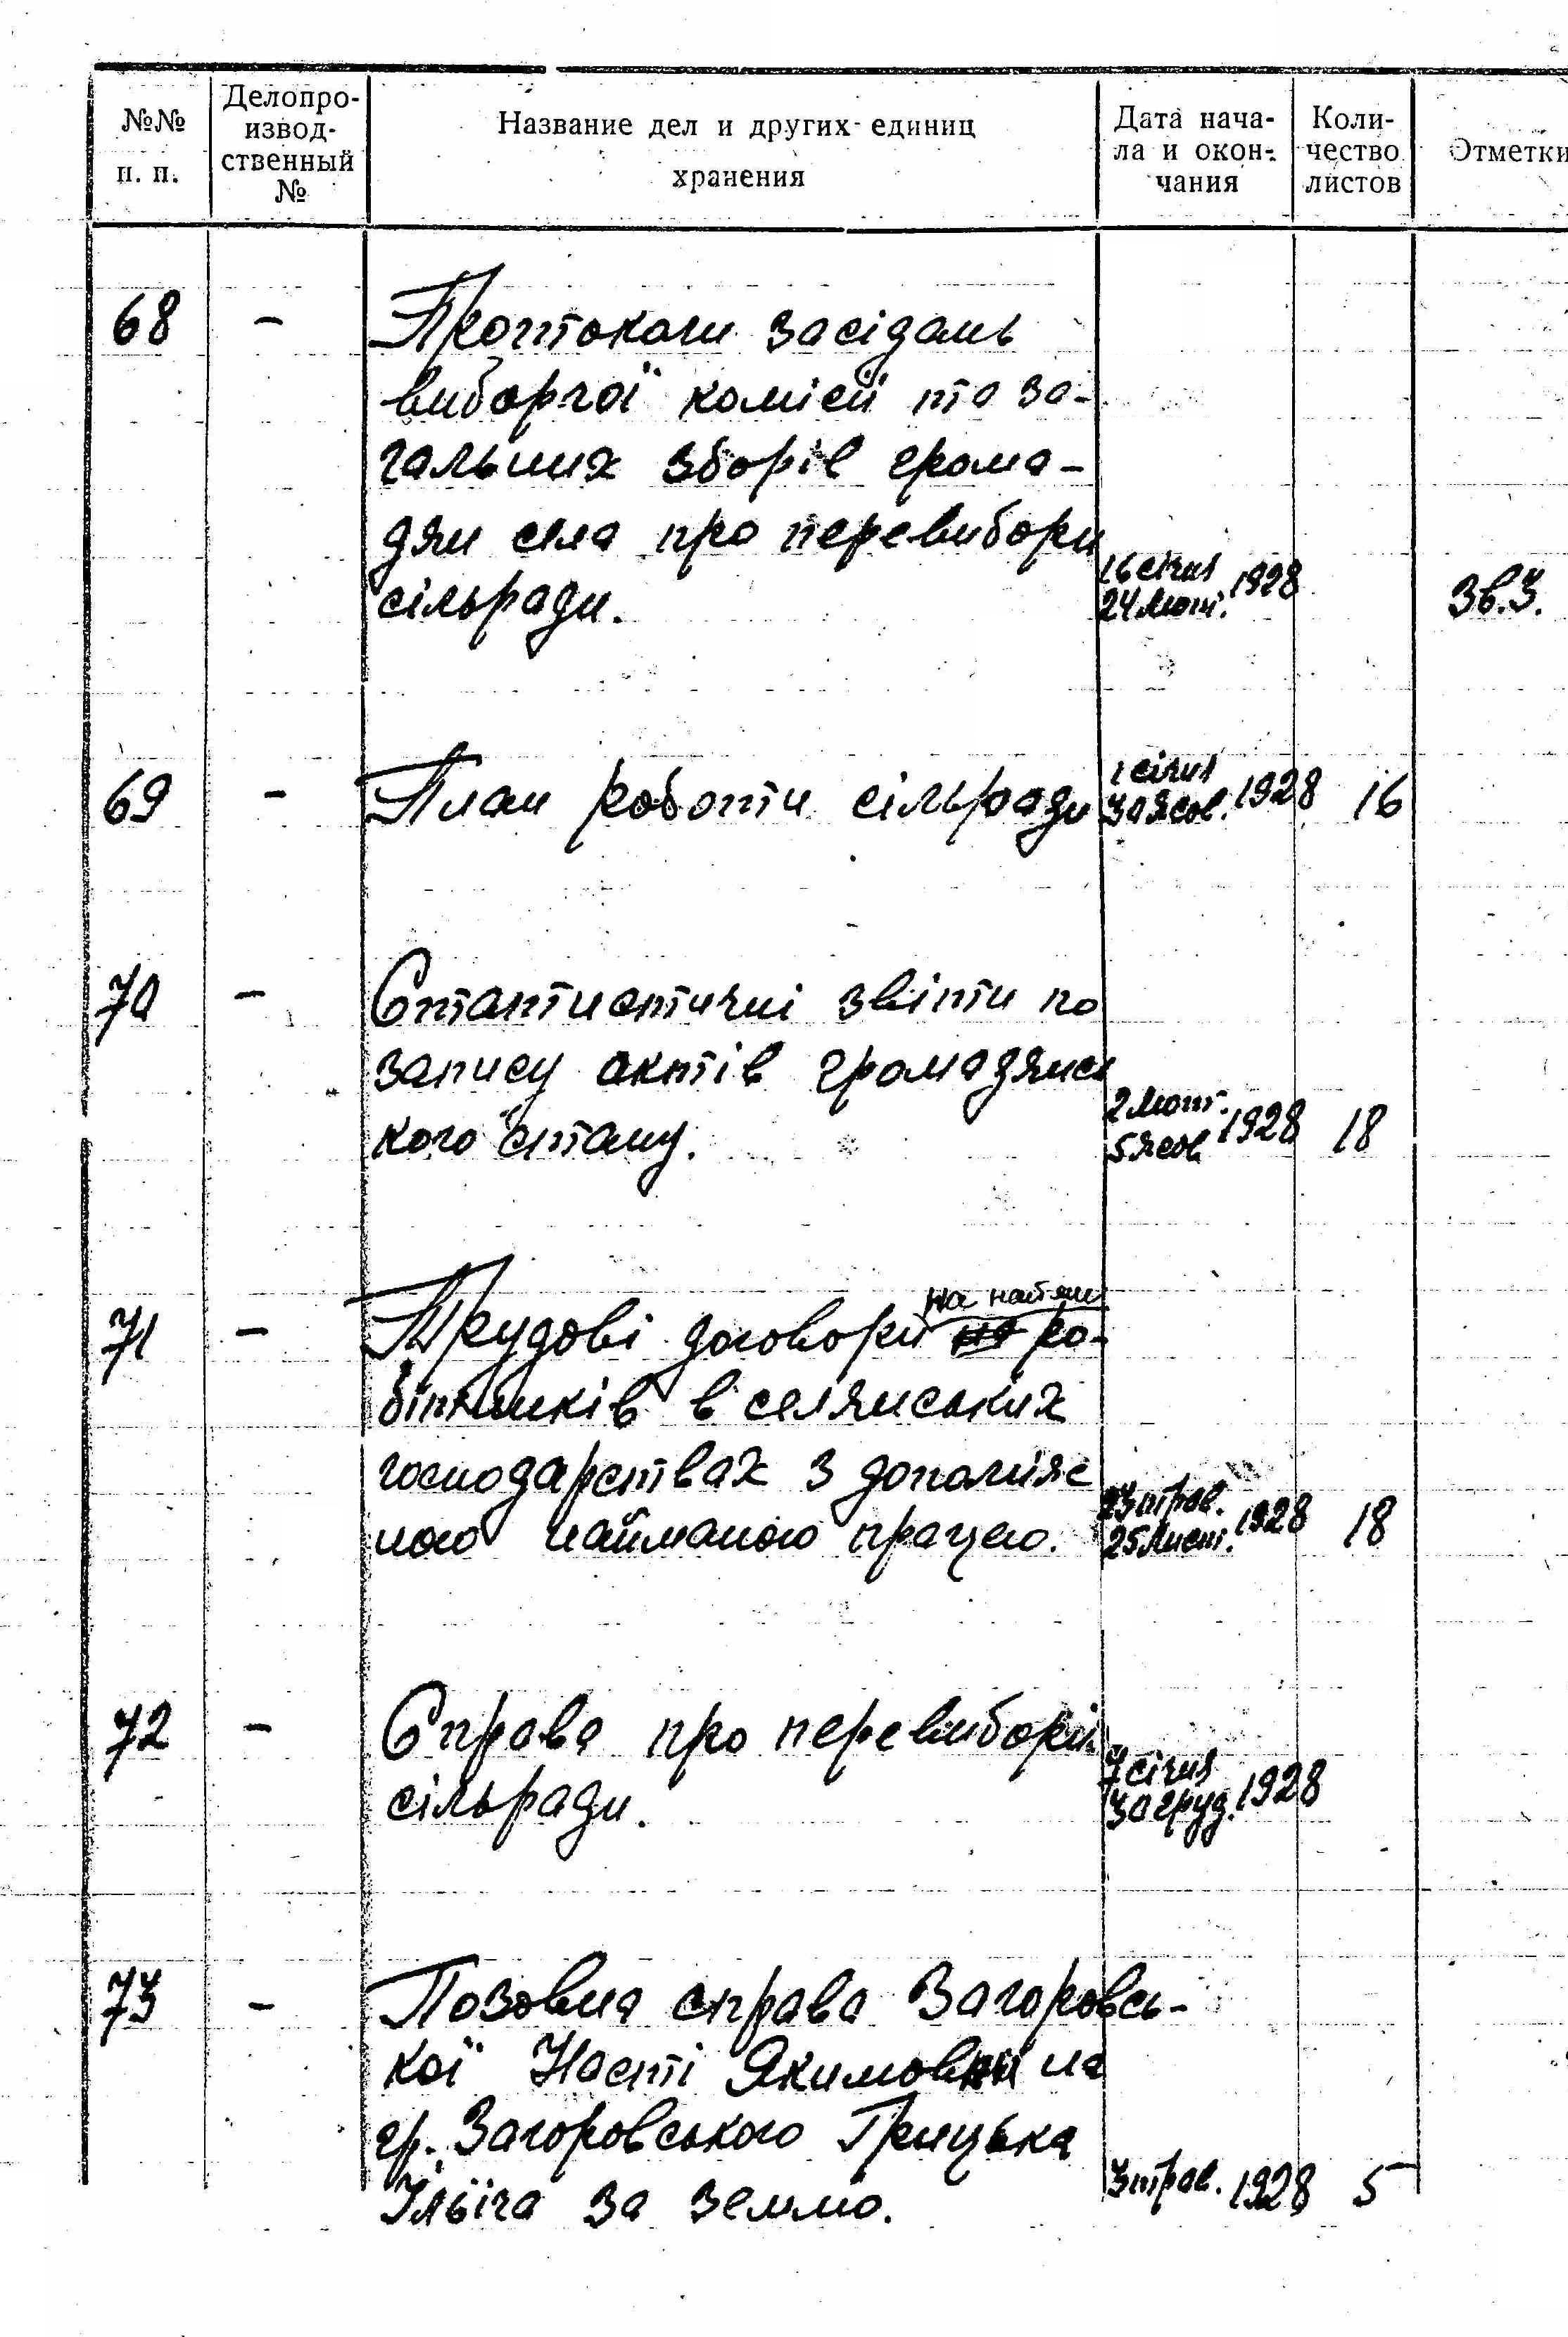 №№ п. п.
Делопро-
извод-
ственный
№
Название дел и других единиц
хранения
Дата нача-
ла и окон-
чания
Коли-
чество
листов
Отметки
68 –
Протоколи засідань
виборчої комісії та за-
гальних зборів грома-
дян села про перевибори
сільради.
16 січня
24 лют. 1928
Зв.З.
69 –
План роботи сільради
1 січня
30 жов. 1928 16
70 –
Статистичні звіти по
запису актів громадянсь
кого стану.
2 лют.
5 жов 1928 18
71 –
на найом
Трудові договори на ро-
бітників в селянських
господарствах з допоміж
ною найманою працею.
23 трав.
25 лист. 1928 18
72 –
Справа про перевибори
сільради.
7 січня
30 груд. 1928
73 –
Позовна справа Загоровсь-
кої Насті Якимовни на
гр. Загоровського Грицька
Ільїча за землю.
3 трав. 1928 5